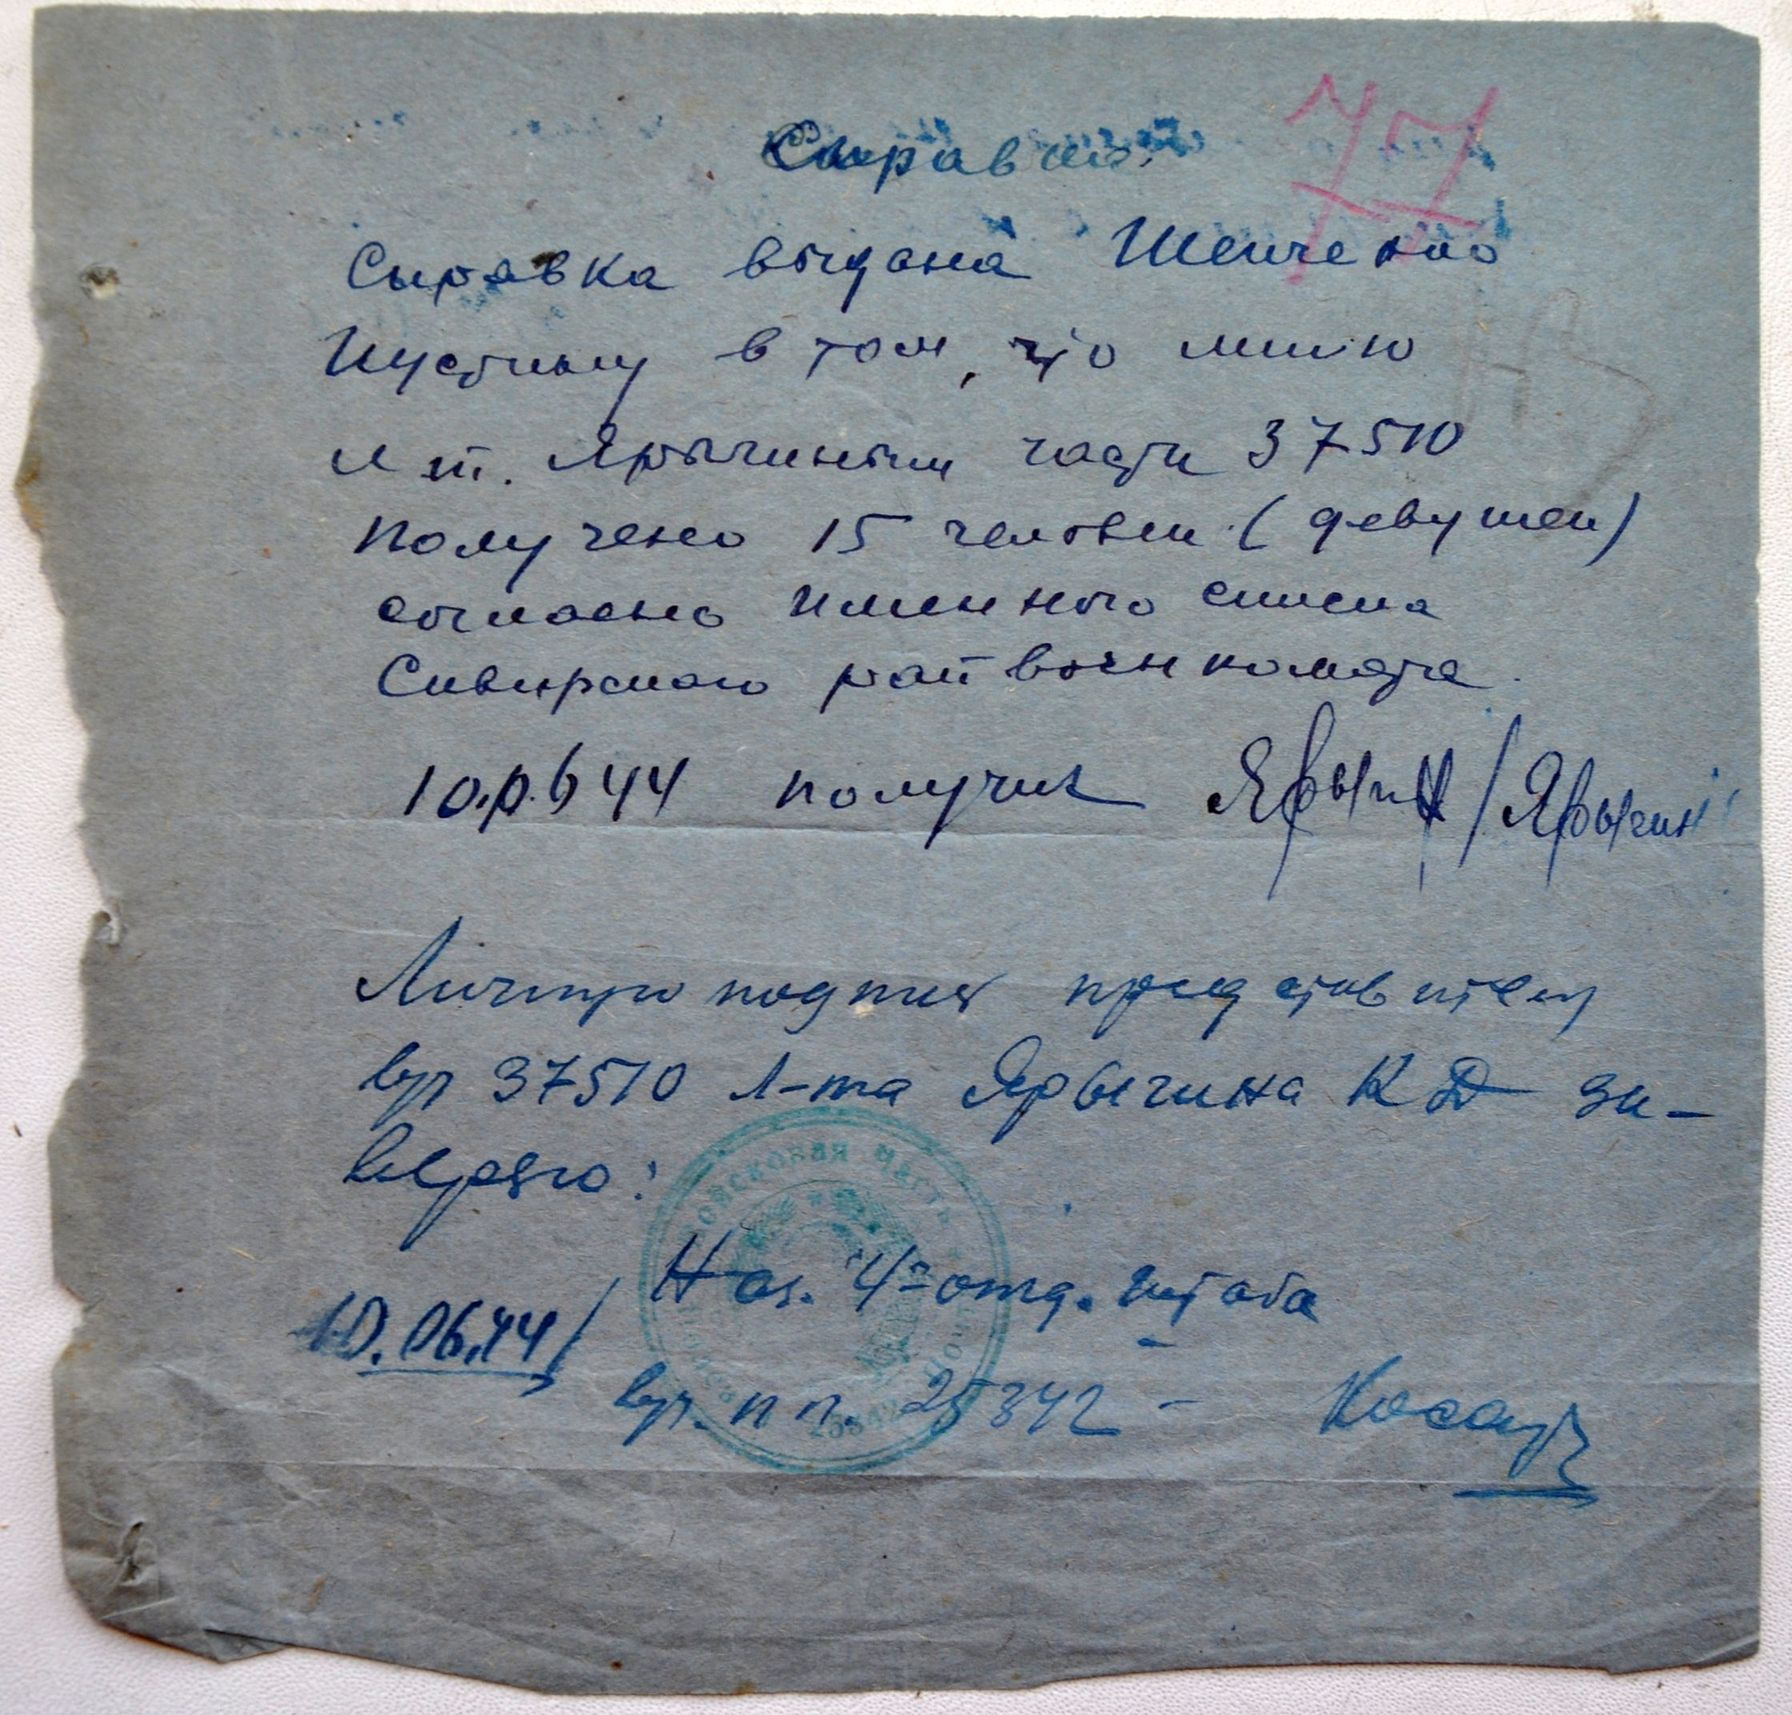 77
Справка
Справка выдана Шевченко
Иустину в том, что мною
Лт. Ярыгиным части 37510
Получено 15 человек (девушек)
согласно именного списка
Сивирского райвоенкомата.
10.06 44 получил Ярыгин /Ярыгин
Личную подпись представителя
в/ч 37510 Л-та Ярыгина К Д за-
веряю:
Нач. 4го отд. штаба
10.06.44
в/ч. п п. 25342 -
войсковая часть